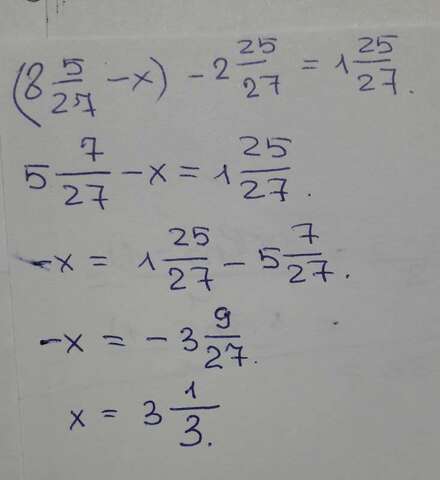 (8 5/27 - x) - 2 25/27 = 1 25/27.
5 7/27 - x = 1 25/27.
-x = 1 25/27 - 5 7/27.
-x = - 3 9/27.
x = 3 1/3.